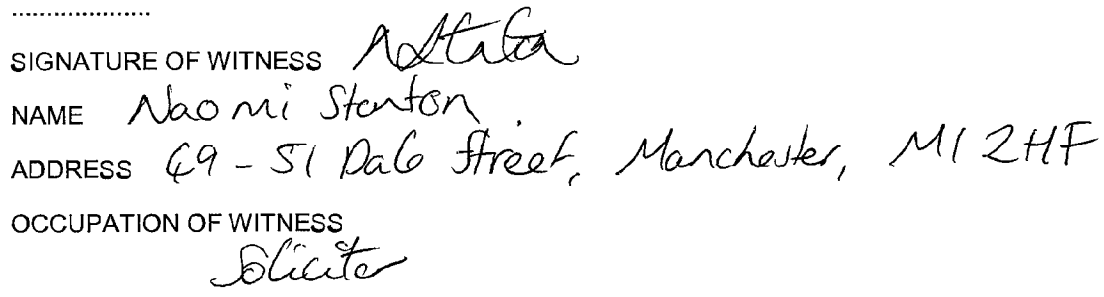 ....................
SIGNATURE OF WITNESS
NAME Naomi Stanton
ADDRESS 49-51 Dale Street, Manchester, M1 2HF
OCCUPATION OF WITNESS
Solicitor